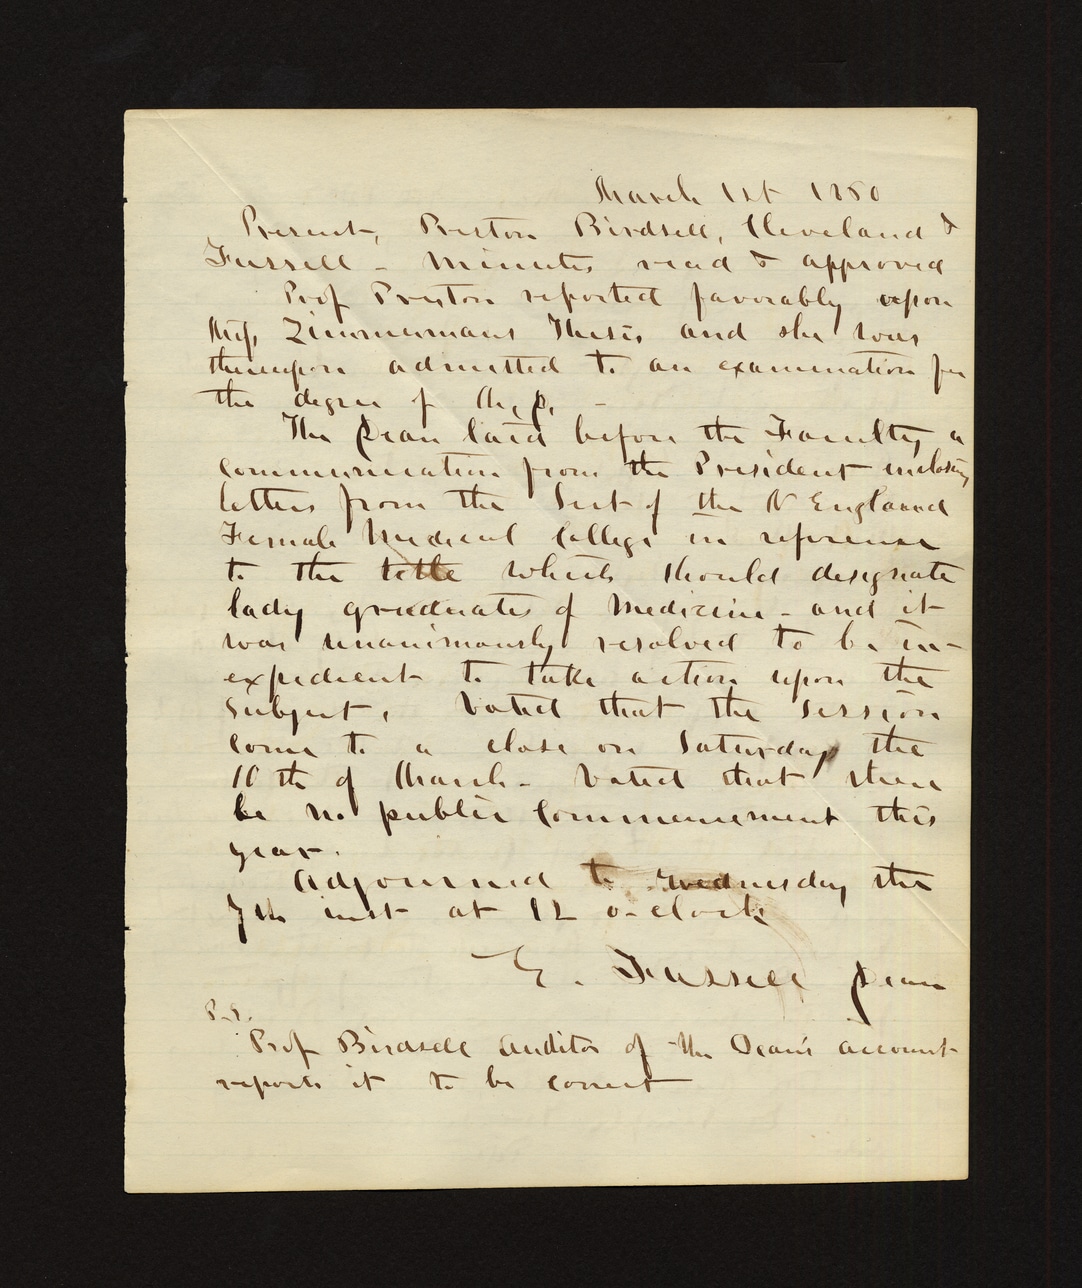 March 1st 1860
Present, Preston Birdsell, Cleveland &
Fussell - Minutes read & approved
Prof Preston reported favorably upon
Miss Zimmermans Thesis and she was
thereupon admitted to an examination for
the degree of M.D. -
The Dean laid before the Faculty a
communication from the President inclosing
letters from the Sect of the N England
Female Medical College in reference
to the title which should designate
lady graduates of Medicine - and it
was unanimously resolved to be in-
expedient to take action upon the
subject. Voted that the session
come to a close on Saturday the
10th of March - Voted that there
be no public commencement this
year.
Adjourned to Wednesday the
7th inst at 12 o-clock
E. Fussell Dean
P.S.
Prof Birdsell Auditor of the Dean's account
reports it to be correct